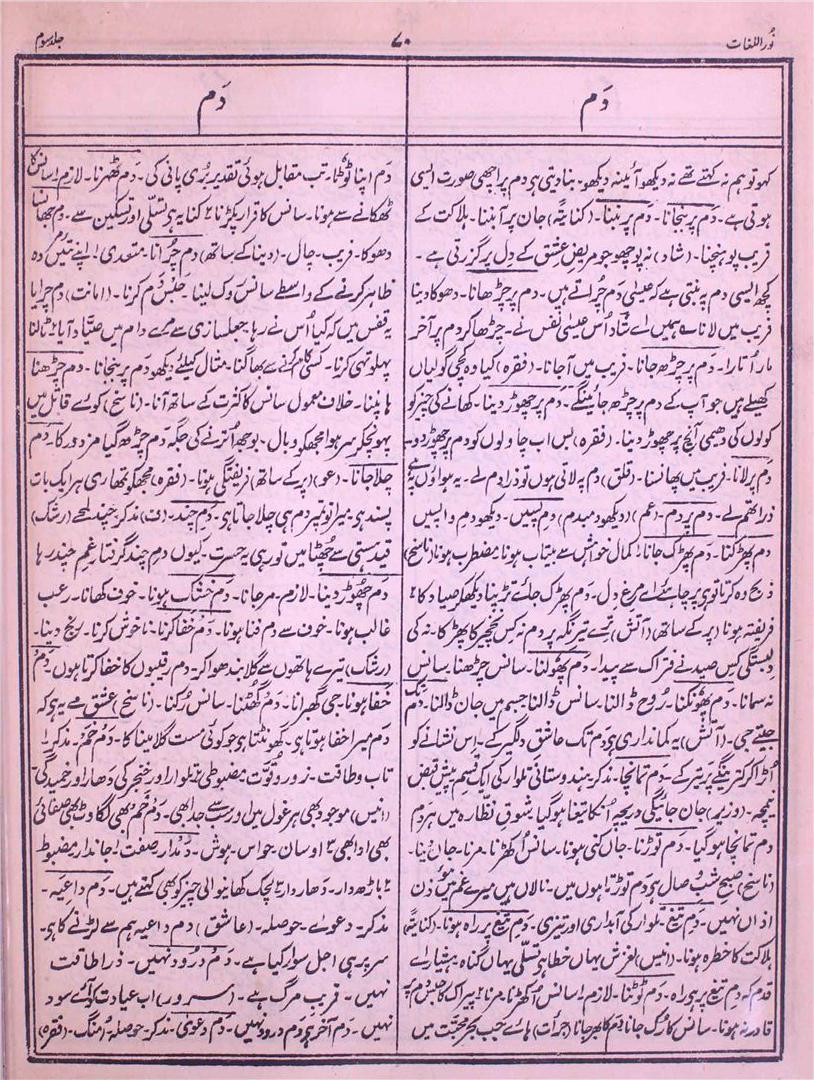 نور اللغات
۷۰
جلد سوم
دَم
دَم
کہو تو ہم نہ کہتے تھے نہ دیکھو آئینہ دیکھو۔ بنا دیتی ہی دم پر اچھی صورت ایسی
ہوتی ہے۔ دَم پر بنجانا۔ دَم پر بننا۔ (کنایتہً) جان پر آ بننا۔ ہلاکت کے
قریب پوہنچنا۔ (شاد) نہ پوچھو جو مریض عشق کے دل پر گزرتی ہے۔
کچھ ایسی دم پہ بنتی ہے کہ عیسیٰ دَم چراتے ہیں۔ دَم پر چڑھانا۔ دھوکا دینا
فریب میں لانا ؎ ہمیں اے شاد اُس عیسیٰ نفس نے۔ چڑھا کر دم پر آخر
مار اُتارا۔ دَم پر چڑھ جانا۔ فریب میں آجانا۔ (فقرہ) کیا وہ کچی گولیاں
کھیلے ہیں جو آپ کے دم پر چڑھ جائینگے۔ دَم پر چھوڑ دینا۔ کھانے کی چیز کو
کولوں کی دھیمی آنچ پر چھوڑ دینا۔ (فقرہ) بس اب چاولوں کو دم پر چھوڑ دو۔
دم پر لانا۔ فریب میں پھانسنا۔ (قلق) دم پہ لاتی ہوں تو ذرا دم لے۔ یہ ہواؤں پہ ہے
ذرا تھم لے۔ دم پر دم۔ (عم) (دیکھو دمبدم) دم پسیں۔ دیکھو دم واپسیں
دم پھڑکنا۔ دم پھڑک جانا۔ کمال خواہش سے بیتاب ہونا۔ مضطرب ہونا (ناسخ)
ذبح وہ کرتا تو ہی پر چاہئے اے مرغ دل۔ دم پھڑک جائے تڑپنا دیکھکر صیاد کا ۲
فریفتہ ہونا (پر کے ساتھ) (آتش) تیرے تیر نگہ پر دم نہ کس نخچیر کا پھڑکا۔ نہ کی
دلبستگی کس صید نے فتراک سے پیدا۔ دم پھولنا۔ سانس چڑھنا۔ سانس
نہ سمانا۔ دم پھونکنا۔ روح ڈالنا۔ سانس ڈالنا۔ جسم میں جان ڈالنا۔ دم تک
جیتے جی۔ (آتش) یہ کمانداری ہی دَم تک عاشق دلگیر کے۔ اس نشانے کو
اُڑا کر کترینگے پر تیر کے۔ دم تمانچا۔ مذکر۔ ہندوستانی تلوار کی ایک قسم۔ پیش قبض
نیمچہ۔ (وزیر) جان جائیگی دریچہ اُنکا تیغا ہوگیا۔ شوق نظّارہ میں ہر دم
دم تمانچا ہوگیا۔ دم توڑنا۔ جاں کنی ہونا۔ سانس اُکھڑنا۔ مرنا۔ جان دینا۔
(ناسخ) صبح شبِ وصال ہی دم توڑتا ہوں میں۔ نالاں ہیں میرے غم میں موذن
اذاں نہیں۔ دم تیغ۔ تلوار کی آبداری اور تیزی۔ دمِ تیغ پر راہ ہونا۔ (کنایتہً)
ہلاکت کا خطرہ ہونا۔ (انیس) لغزش یہاں خطا ہی تسلّی یہاں گناہ۔ ہشیار اے
قدم کہ دم تیغ پر ہی راہ۔ دم ٹوٹنا۔ لازم۔ ۱ سانس اُکھڑنا۔ مرنا ۲ پیراک کا حبس دم پہ
قادر نہ ہونا۔ سانس کا رُک جانا۔ دم کا بھر جانا (جرأت) ہائے جب بحر محبت میں
دَم اپنا ٹوٹا۔ تب مقابل ہوئی تقدیر بُری پانی کی۔ دم ٹھہرنا۔ لازم ۱ سانس کا
ٹھکانے سے ہونا۔ سانس کا قرار پکڑنا ۲ کنایہ ہی تسلّی اور تسکین سے۔ دم جھانسا
دھوکا۔ فریب۔ چال۔ (دینا کے ساتھ) دم چُرانا۔ متعدی ۱ اپنے تئیں مردہ
ظاہر کرنے کے واسطے سانس روک لینا۔ حبس دم کرنا۔ (امانت) دم چرایا
یہ قفس میں کہ کیا اُس نے رہا۔ جعلسازی سے مرے دام میں صیّاد آیا ۲ ٹالنا
پہلو تہی کرنا۔ کسی کام کرنے سے بھاگنا۔ مثال کیلئے دیکھو دم پر بنجانا۔ دم چڑھنا
ہانپنا۔ خلاف معمول سانس کا کثرت کے ساتھ آنا۔ (ناسخ) کوئے قاتل میں
پہونچکر سر ہوا مجھکو وبال۔ بوجھ اُترنے کی جگہ دم چڑھ گیا مزدور کا۔ دم
چلا جانا۔ (عو) (پر کے ساتھ) فریفتگی ہونا۔ (فقرہ) مجھکو تمھاری ہر ایک بات
پسند ہی میرا تو تمپر دم ہی چلا جاتا ہی۔ دم چند۔ (ف) مذکر۔ چند لمحے (رشک)
قید ہستی سے چھٹا میں تو رہی یہ حسرت۔ کیوں دم چند گرفتار غم چند رہا
دم چھوڑ دینا۔ لازم۔ مرجانا۔ دم خشک ہونا۔ خوف کھانا۔ رعب
غالب ہونا۔ خوف سے دم فنا ہونا۔ دَم خفا کرنا۔ ناخوش کرنا۔ رنج دینا۔
(رشک) تیرے ہاتھوں سے گلا بندھوا کر۔ دم رقیبوں کا خفا کرتا ہوں۔ دم
خفا ہونا۔ جی گھبرانا۔ دَم گھٹنا۔ سانس رُکنا۔ (ناسخ) عشق مے یہ ہی کہ
دَم میرا خفا ہوتا ہی۔ گھونٹتا ہی جو کوئی مست گلا مینا کا۔ دَم خَم۔ مذکر ۱
تاب و طاقت۔ زور و قوت۔ مضبوطی ۲ تلوار اور خنجر کی دھار اور خمیدگی۔
(انیس) موجود بھی ہر غول میں اور سب سے جدا بھی۔ دم خم بھی لگاوٹ بھی صفائی
بھی ادا بھی ۳ اوسان۔ حواس۔ ہوش۔ دَمدار۔ صفت ۱ جاندار۔ مضبوط
۲ باڑھ دار۔ دھاردار ۳ لچک کھانیوالی چیز کو بھی کہتے ہیں۔ دم داعیہ۔
مذکر۔ دعوے۔ حوصلہ۔ (عاشق) دم داعیہ ہم سے لڑنے کا ہی۔
سر پر ہی اجل سوار کیا ہے۔ دَم دُرود نہیں۔ ذرا طاقت
نہیں۔ قریب مرگ ہے۔ (سرور) اب عیادت کو آئے سود
نہیں۔ دم آخر ہی دم درود نہیں۔ دم دعویٰ۔ مذکر۔ حوصلہ۔ اُمنگ۔ (فقرہ)